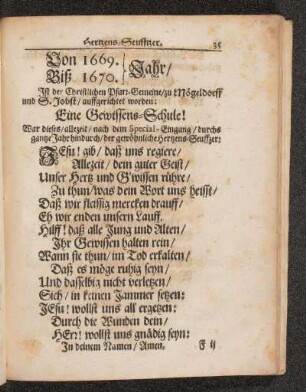 Hertzens-Seuffzer. 35
Von 1669.
Biß 1670. } Jahr/
Ist der Christlichen Pfarr-Gemeine/zu Mögeldorff
und S. Jobst/ auffgerichtet worden:
Eine Gewissens-Schule!
War dieses/allezeit/ nach dem Special-Eingang/durchs
gantze Jahr hindurch/der gewöhnliche Hertzens-Seuffzer:
JEsu! gib/ daß uns regiere/
Allezeit/ dein guter Geist/
Unser Hertz und G'wissen rühre/
Zu thun/was dein Wort uns heisst/
Daß wir fleissig mercken drauff/
Eh wir enden unsern Lauff.
Hilff! daß all Jung und Alten/
Ihr Gewissen halten rein/
Wann sie thun/ im Tod erkalten/
Daß es möge ruhig seyn/
Und dasselbig nicht verletzen/
Sich/ in keinen Jammer setzen:
JEsu! wollst uns all ergetzen:
Durch die Wunden dein/
HErr! wollst uns gnädig seyn:
In deinem Namen/ Amen.
F ij